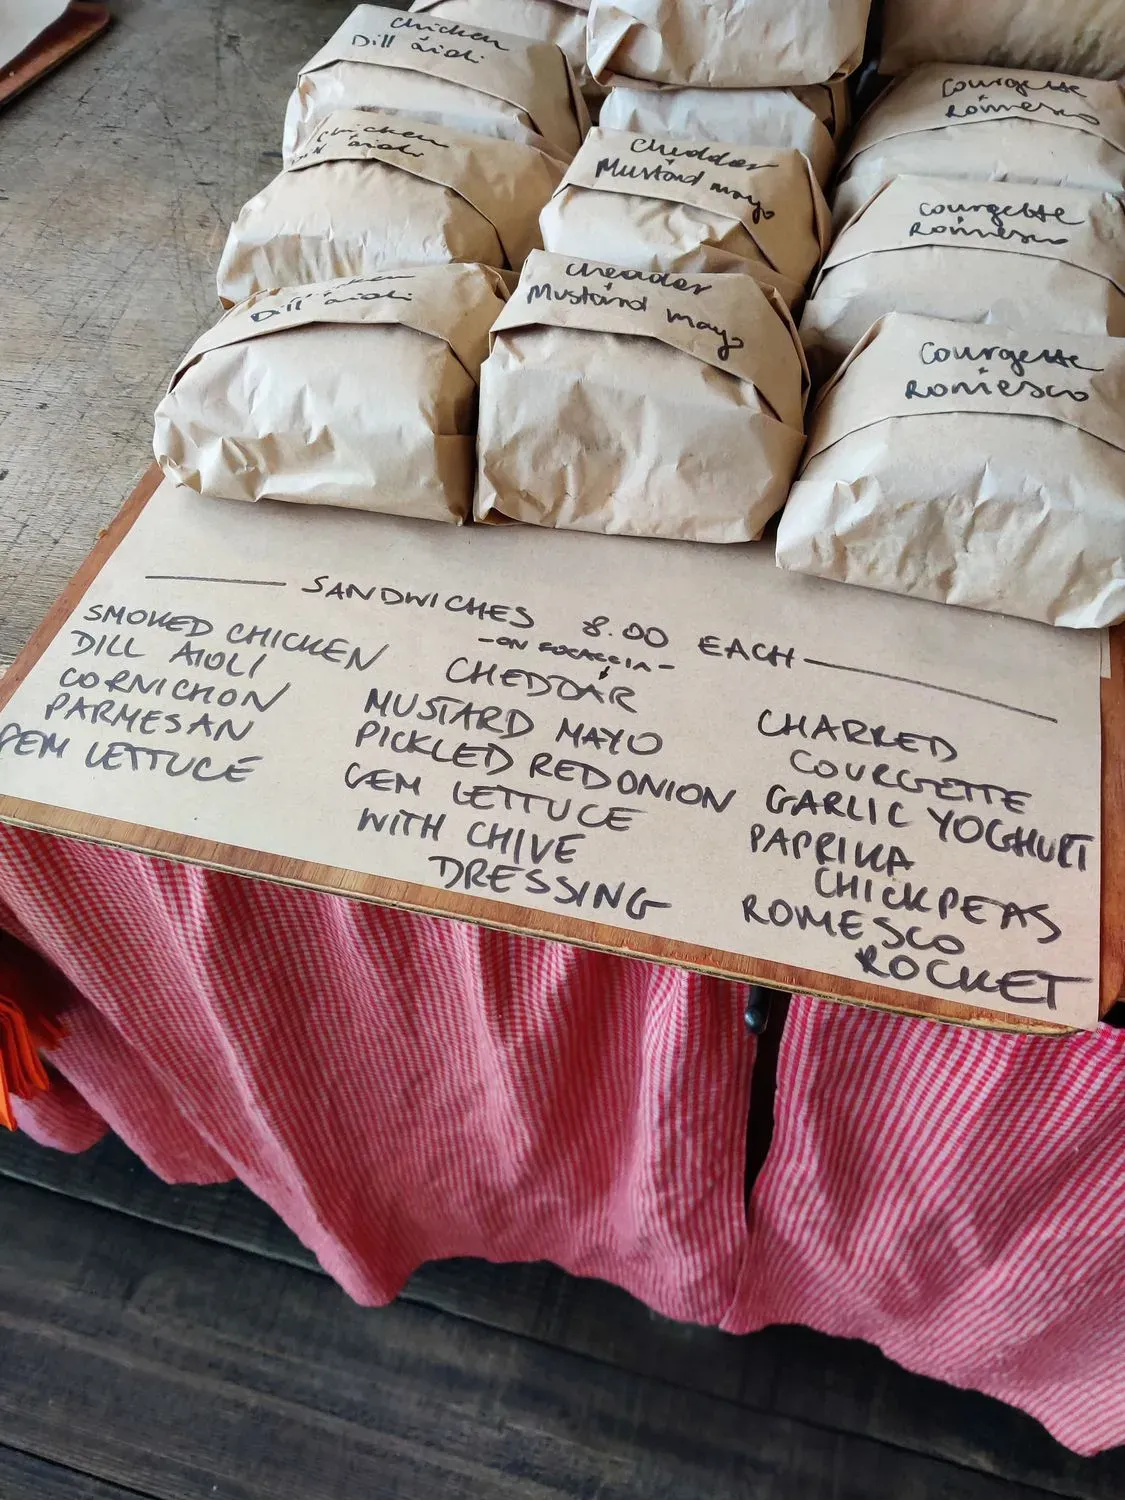 chicken
Dill aioli
chicken
aioli
Dill aioli
cheddar
Mustard mayo
cheddar
Mustard mayo
courgette
Romesco
courgette
Romesco
courgette
Romesco
SANDWICHES 8.00 EACH
-ON FOCACCIA-
SMOKED CHICKEN
DILL AIOLI
CORNICHON
PARMESAN
GEM LETTUCE
CHEDDAR
MUSTARD MAYO
PICKLED RED ONION
GEM LETTUCE
WITH CHIVE
DRESSING
CHARRED
COURGETTE
GARLIC YOGHURT
PAPRIKA
CHICKPEAS
ROMESCO
ROCKET